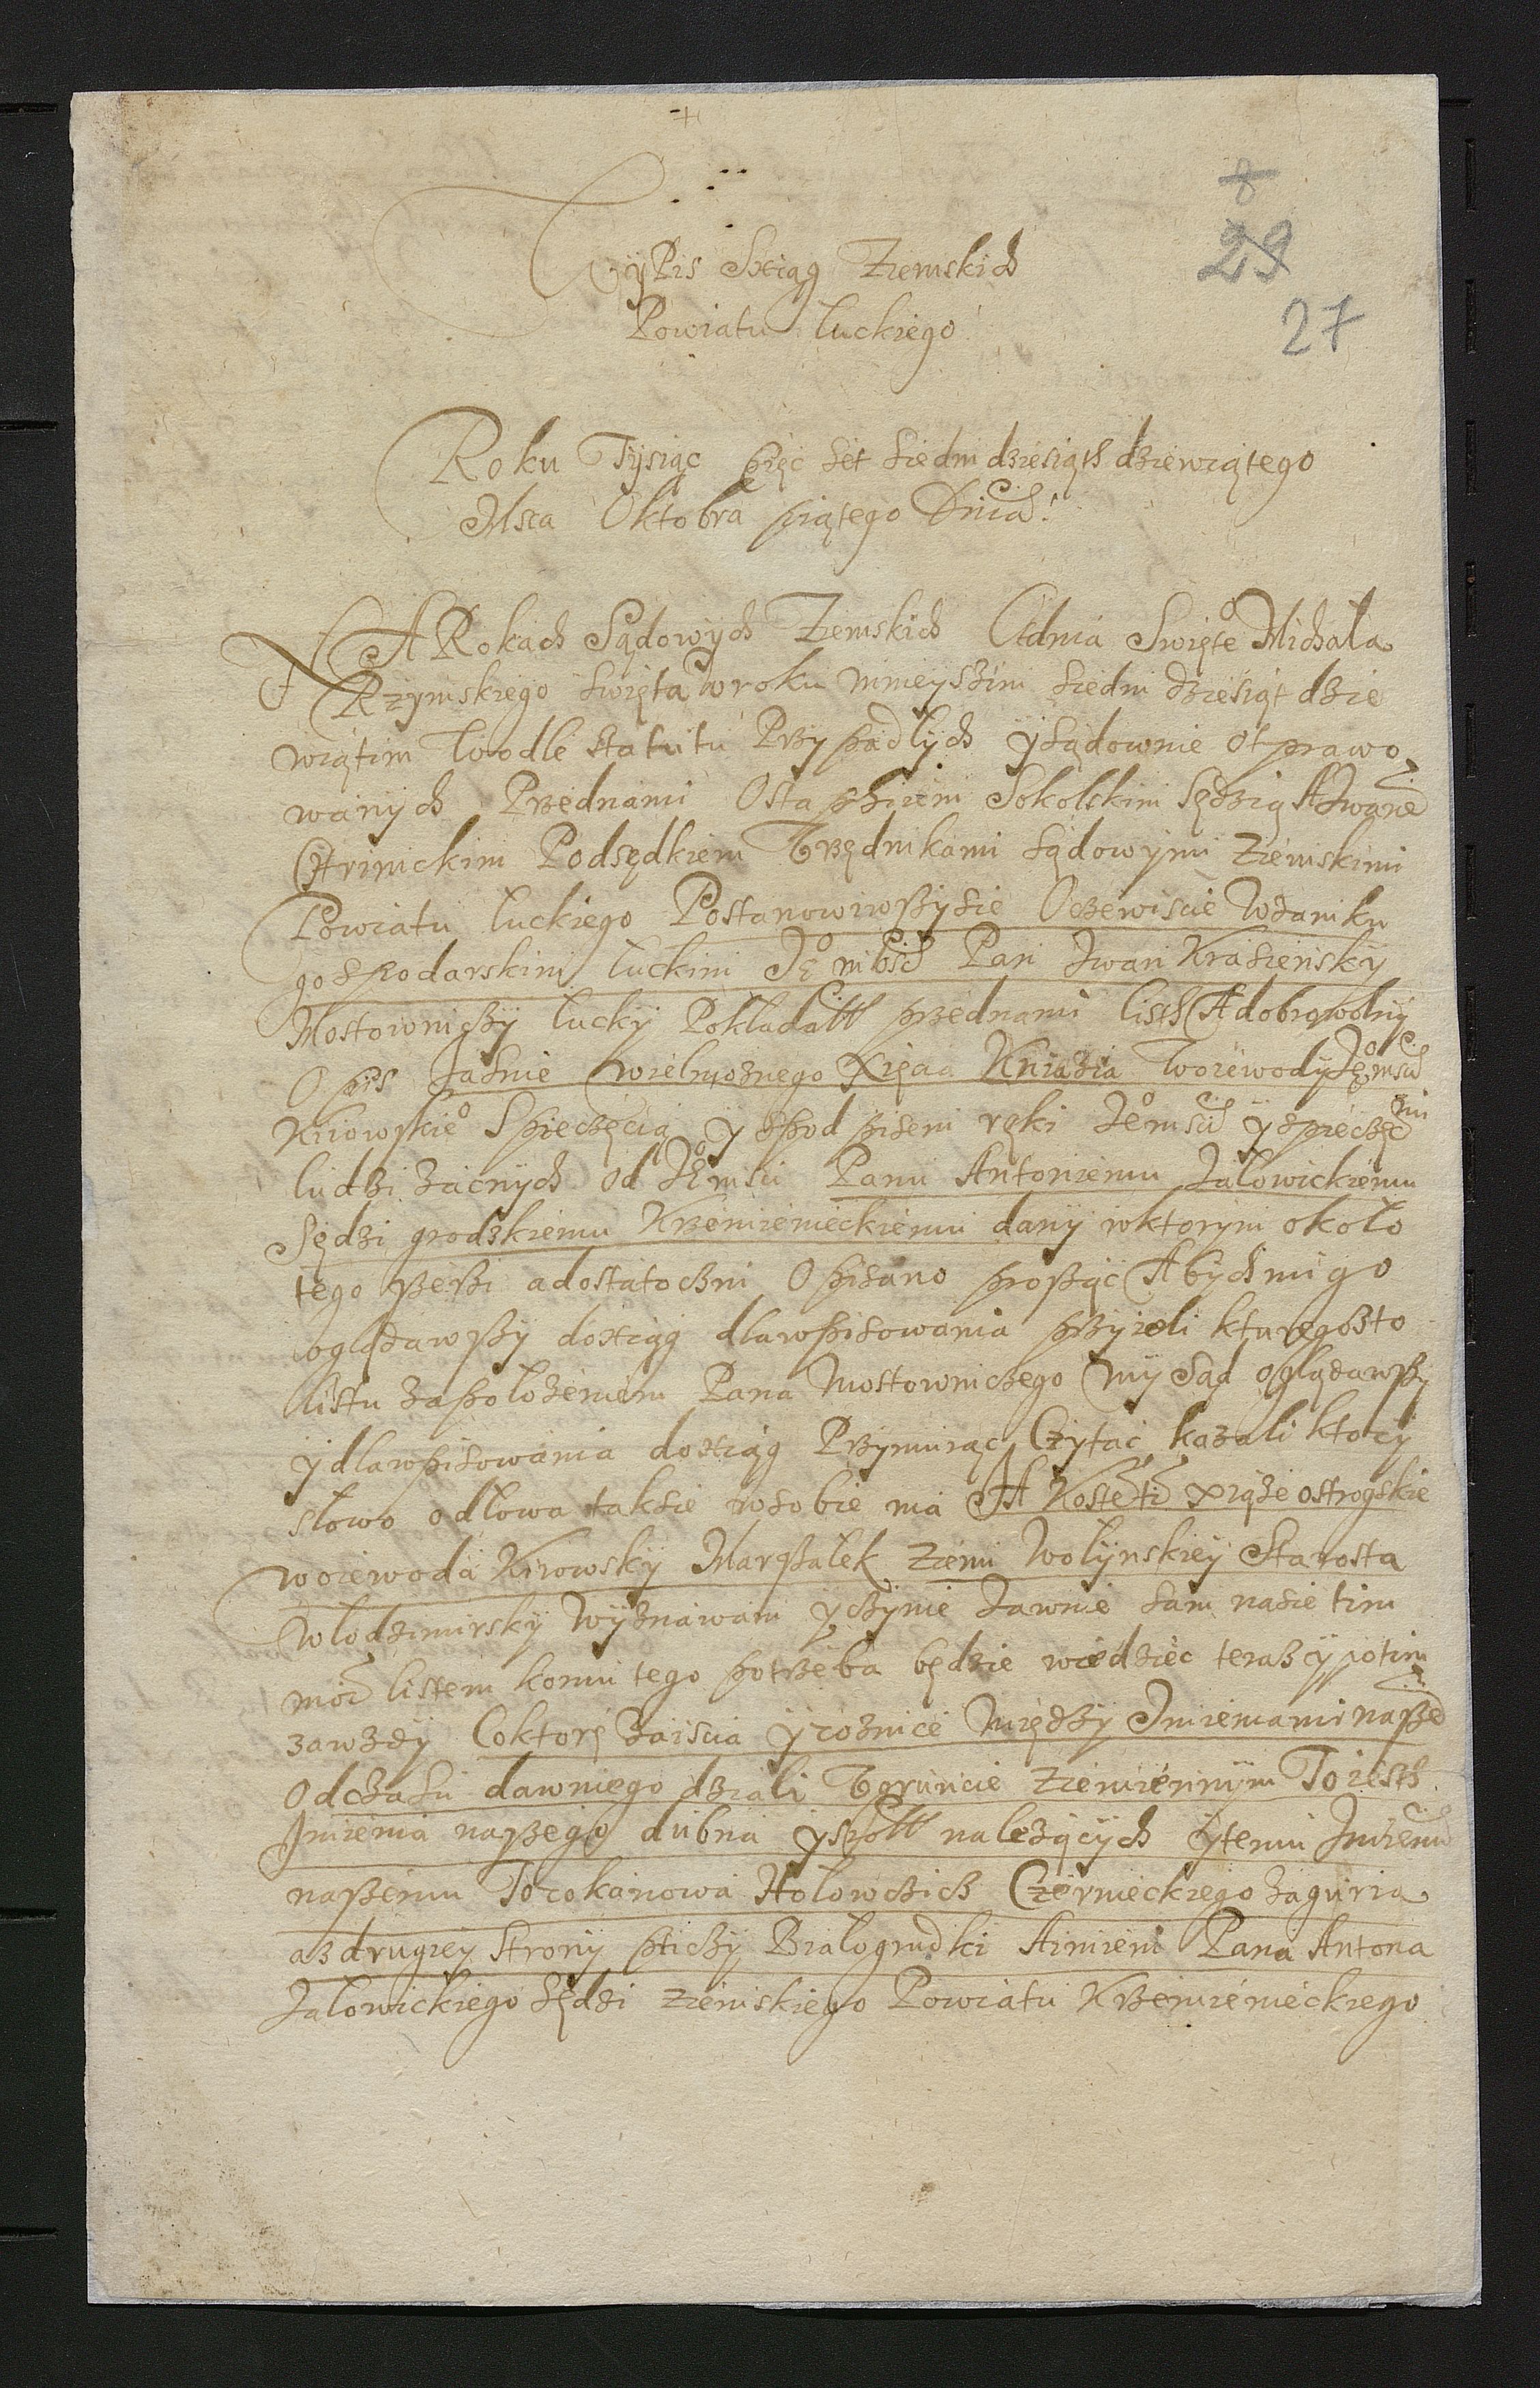 8
29
27
Wÿpis Sxiąg Ziemskich
Powiatu łuckiego
Roku Tÿsiąc pięć set siedmdziesiąth dziewiątego
Msca Oktobra piątego Dnia
NA Rokach Sądowÿch Ziemskich Odnia Swięte° Michała
Rzymskiego swięta w roku ninieyszim siedmdziesiąt dzie
wiątim wodle statutu Przypadłych ÿsądownie otprawo
wanÿch Przednami Ostaphiiem Sokolskim Sędzią AIwanē
Podsędkiem Vrzędnikami sądowymi ziemskimi
Powiatu łuckiego Postanowiwszysie Oczewiscie Wzamku
gospodarskim łuckim Je° mość Pan Iwan Krasienskÿ
Mostowniczÿ łuckÿ Pokładałł przednami listh Adobrowolnÿ
Opis Jasnie wielmożnego Xięcia Kniazia Woiewodÿ Je° msci
Kiiowskie° Spieczęcią y spod pisem ręki Je° msci ÿ spieczęcmi
ludzi zacnÿch od Je° msci Panu Antoniemu Jałowickiemu
Sędzi grodzkiemu Krzemienieckiemu danÿ wktorym około
tego szerzi adostatoczni Opisano prosząc Abychmi go
oglądawszy doxiąg dlawpisowania przyieli kturegożto
listu zapołożeniem Pana Mostowniczego my Sąd oglądawszy
ÿdlawpisowania doxiąg Przyimuiąc Czytać kazali ktorÿ
słowo odsłowa taksie wsobie ma JA xiąże ostrogskie
woiewoda Kiiowskÿ Marszałek ziemi Wołÿnskieÿ Starosta
Włodzimirskÿ Wÿznawam yczÿnie Jawnie sam nasie tim
moī listem komu tego potrzeba będzie wiedzieć teraz ÿ potim
zawzdÿ Coktorę zaiscia ÿrożnice międzÿ Imieniami naszē
odczasu dawniego dziali Vgruncie ziemiennÿm To iesth
Imienia naszego dubna yszołł należącÿch ktemu Imieniu
naszemu Torokanowa Hołowczich Czernieckiego zaguria
azdrugiey stronÿ pticzÿ Białogrudki Aimieni Pana Antona
Jałowickiego sędzi ziemskiego Powiatu Krzemienieckiego